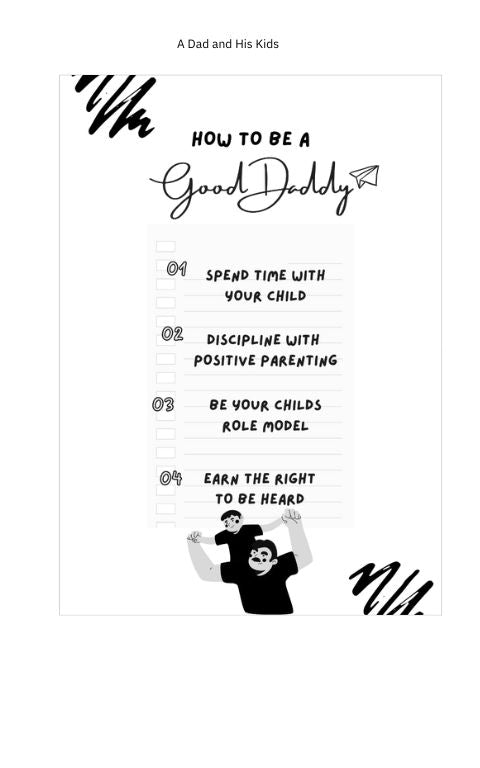 A Dad and His Kids
HOW TO BE A
Good Daddy
01 SPEND TIME WITH
YOUR CHILD
02 DISCIPLINE WITH
POSITIVE PARENTING
03 BE YOUR CHILDS
ROLE MODEL
04 EARN THE RIGHT
TO BE HEARD